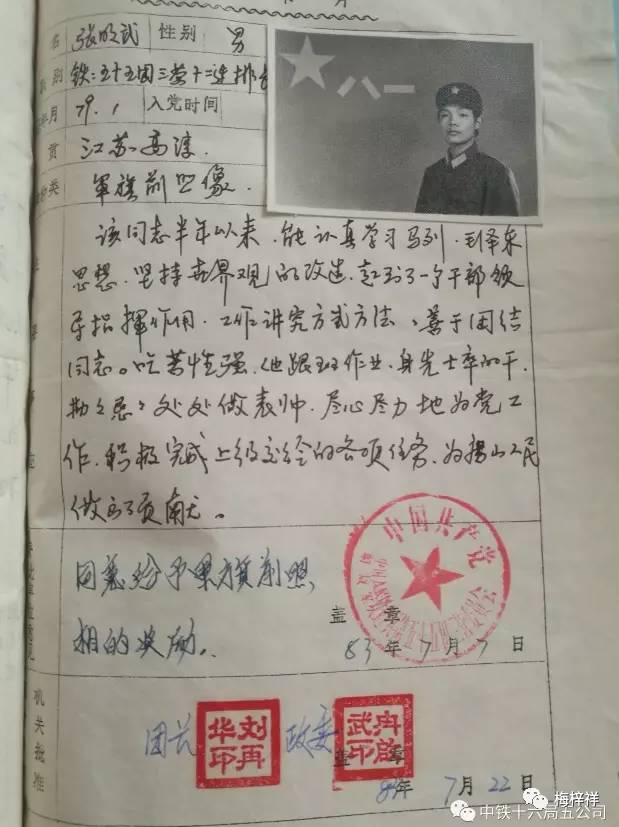 名 张明武 性别 男
别 铁:五十五团三营十二连排长
年月 79.1 入党时间
贯 江苏高淳.
类 军旗前照像.
八一
该同志半年以来,能认真学习马列、毛泽东
思想,坚持世界观的改造,起到了一个干部领
导指挥作用.工作讲究方式方法,善于团结
同志。吃苦性强,他跟班作业,身先士卒的干,
勤勤恳恳处处做表帅,尽心尽力地为党工
作,积极完成上级交给的各项任务,为唐山人民
做了贡献。
同意给予军旗前照
相的奖励。
中国共产党
盖章
83年7月7日
机关批准
团长 刘再华印 政委 武印
盖章
年7月22日
梅梓祥
中铁十六局五公司